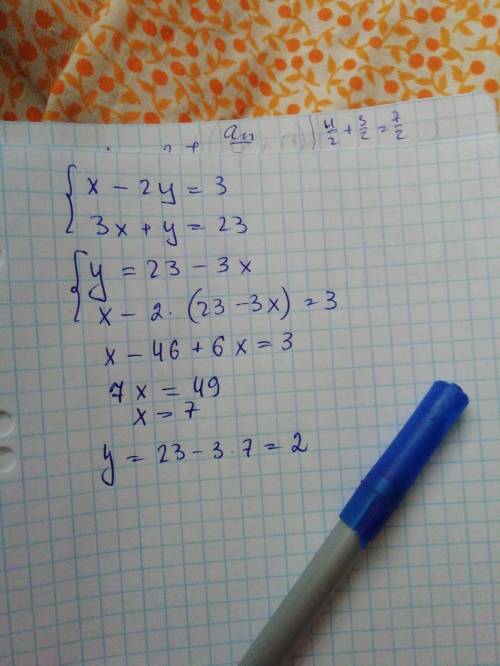 4/2 + 3/2 = 7/2
{ x - 2y = 3
3x + y = 23
{ y = 23 - 3x
x - 2 · (23 - 3x) = 3
x - 46 + 6x = 3
7x = 49
x = 7
y = 23 - 3 · 7 = 2